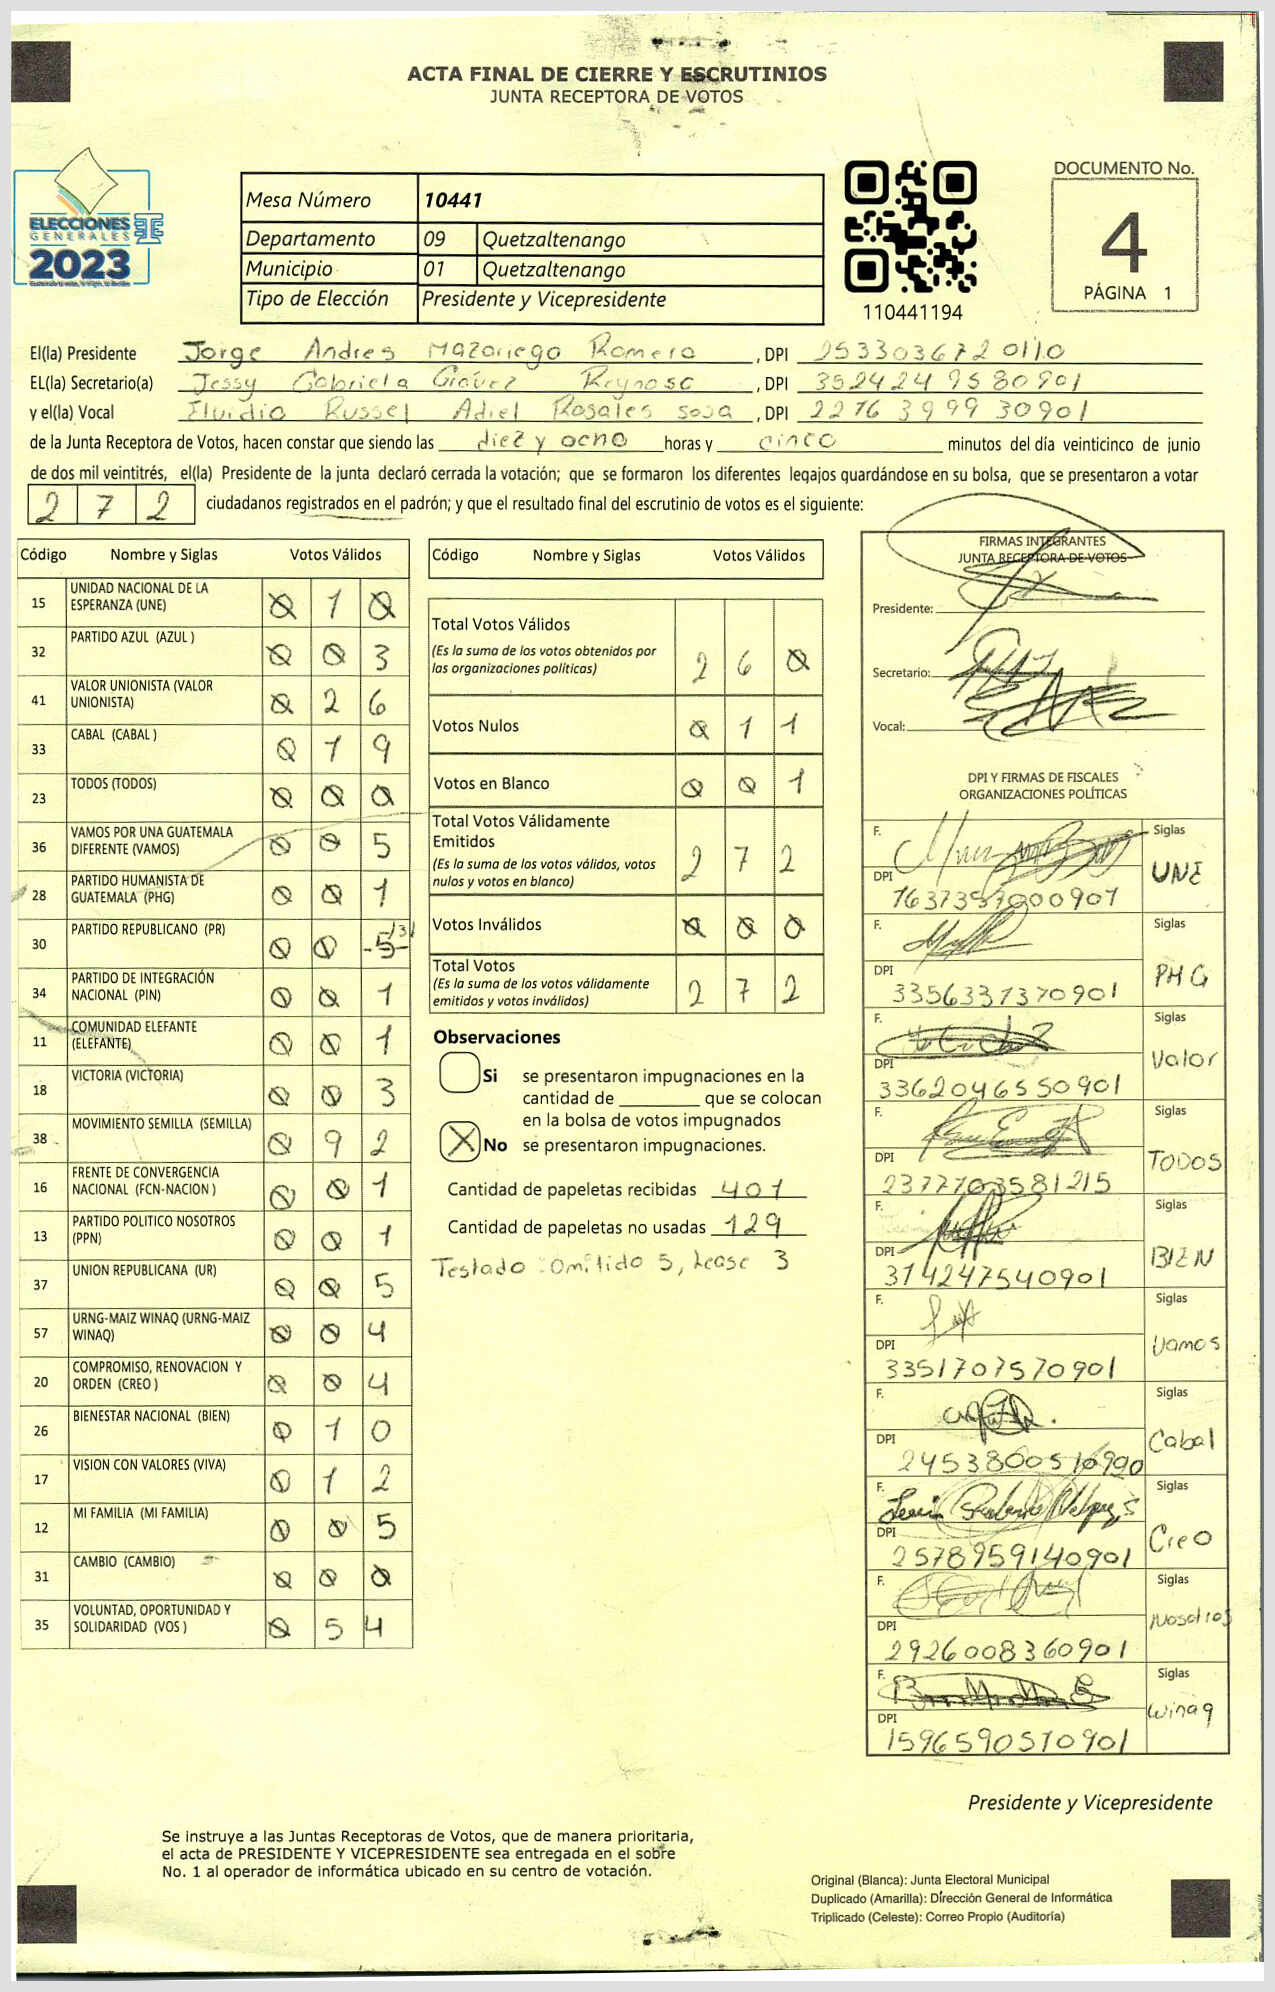 ACTA FINAL DE CIERRE Y ESCRUTINIOS
JUNTA RECEPTORA DE VOTOS
ELECCIONES
GENERALES
2023
Mesa Número 10441
Departamento 09 Quetzaltenango
Municipio 01 Quetzaltenango
Tipo de Elección Presidente y Vicepresidente
110441194
DOCUMENTO No.
4
PÁGINA 1
El(la) Presidente Jorge Andres Mazariego Romero, DPI 2533036720110
EL(la) Secretario(a) Jessy Gabriela Reynoso, DPI 3524249580901
y el(la) Vocal Eluidio Russel Adiel Rosales sosa, DPI 2276399930901
de la Junta Receptora de Votos, hacen constar que siendo las diez y ocho horas y cinco minutos del día veinticinco de junio
de dos mil veintitrés, el(la) Presidente de la junta declaró cerrada la votación; que se formaron los diferentes legajos guardándose en su bolsa, que se presentaron a votar
2 7 2 ciudadanos registrados en el padrón; y que el resultado final del escrutinio de votos es el siguiente:
Código Nombre y Siglas Votos Válidos
15 UNIDAD NACIONAL DE LA ESPERANZA (UNE) 0 1 0
32 PARTIDO AZUL (AZUL ) 0 0 3
41 VALOR UNIONISTA (VALOR UNIONISTA) 0 2 6
33 CABAL (CABAL ) 0 1 9
23 TODOS (TODOS) 0 0 0
36 VAMOS POR UNA GUATEMALA DIFERENTE (VAMOS) 0 0 5
28 PARTIDO HUMANISTA DE GUATEMALA (PHG) 0 0 1
30 PARTIDO REPUBLICANO (PR) 0 0 -5- /3/
34 PARTIDO DE INTEGRACIÓN NACIONAL (PIN) 0 0 1
11 COMUNIDAD ELEFANTE (ELEFANTE) 0 0 1
18 VICTORIA (VICTORIA) 0 0 3
38 MOVIMIENTO SEMILLA (SEMILLA) 0 9 2
16 FRENTE DE CONVERGENCIA NACIONAL (FCN-NACION ) 0 0 1
13 PARTIDO POLITICO NOSOTROS (PPN) 0 0 1
37 UNION REPUBLICANA (UR) 0 0 5
57 URNG-MAIZ WINAQ (URNG-MAIZ WINAQ) 0 0 4
20 COMPROMISO, RENOVACION Y ORDEN (CREO ) 0 0 4
26 BIENESTAR NACIONAL (BIEN) 0 1 0
17 VISION CON VALORES (VIVA) 0 1 2
12 MI FAMILIA (MI FAMILIA) 0 0 5
31 CAMBIO (CAMBIO) 0 0 0
35 VOLUNTAD, OPORTUNIDAD Y SOLIDARIDAD (VOS ) 0 5 4
Código Nombre y Siglas Votos Válidos
Total Votos Válidos
(Es la suma de los votos obtenidos por
las organizaciones politicas) 2 6 0
Votos Nulos 0 1 1
Votos en Blanco 0 0 1
Total Votos Válidamente
Emitidos
(Es la suma de los votos válidos, votos
nulos y votos en blanco) 2 7 2
Votos Inválidos 0 0 0
Total Votos
(Es la suma de los votos válidamente
emitidos y votos inválidos) 2 7 2
Observaciones
Si se presentaron impugnaciones en la
cantidad de ________ que se colocan
en la bolsa de votos impugnados
X No se presentaron impugnaciones.
Cantidad de papeletas recibidas 401
Cantidad de papeletas no usadas 129
Testado: Omitido 5, Lease 3
FIRMAS INTEGRANTES
JUNTA RECEPTORA DE VOTOS
Presidente:
Secretario:
Vocal:
DPI Y FIRMAS DE FISCALES
ORGANIZACIONES POLÍTICAS
F. Siglas
DPI 1637357000901 UNE
F. Siglas
DPI 3356337370901 PHG
F. Siglas
DPI 3362046550901 Valor
F. Siglas
DPI 2377703581215 TODOS
F. Siglas
DPI 314247540901 BIEN
F. Siglas
DPI 3351707570901 Vamos
F. Siglas
DPI Cabal
F. Siglas
DPI 2578959140901 Creo
F. Siglas
DPI 2926008360901 Nosotros
F. Siglas
DPI 1596590570901 Winaq
Presidente y Vicepresidente
Se instruye a las Juntas Receptoras de Votos, que de manera prioritaria,
el acta de PRESIDENTE Y VICEPRESIDENTE sea entregada en el sobre
No. 1 al operador de informática ubicado en su centro de votación.
Original (Blanca): Junta Electoral Municipal
Duplicado (Amarilla): Dirección General de Informática
Triplicado (Celeste): Correo Propio (Auditoría)